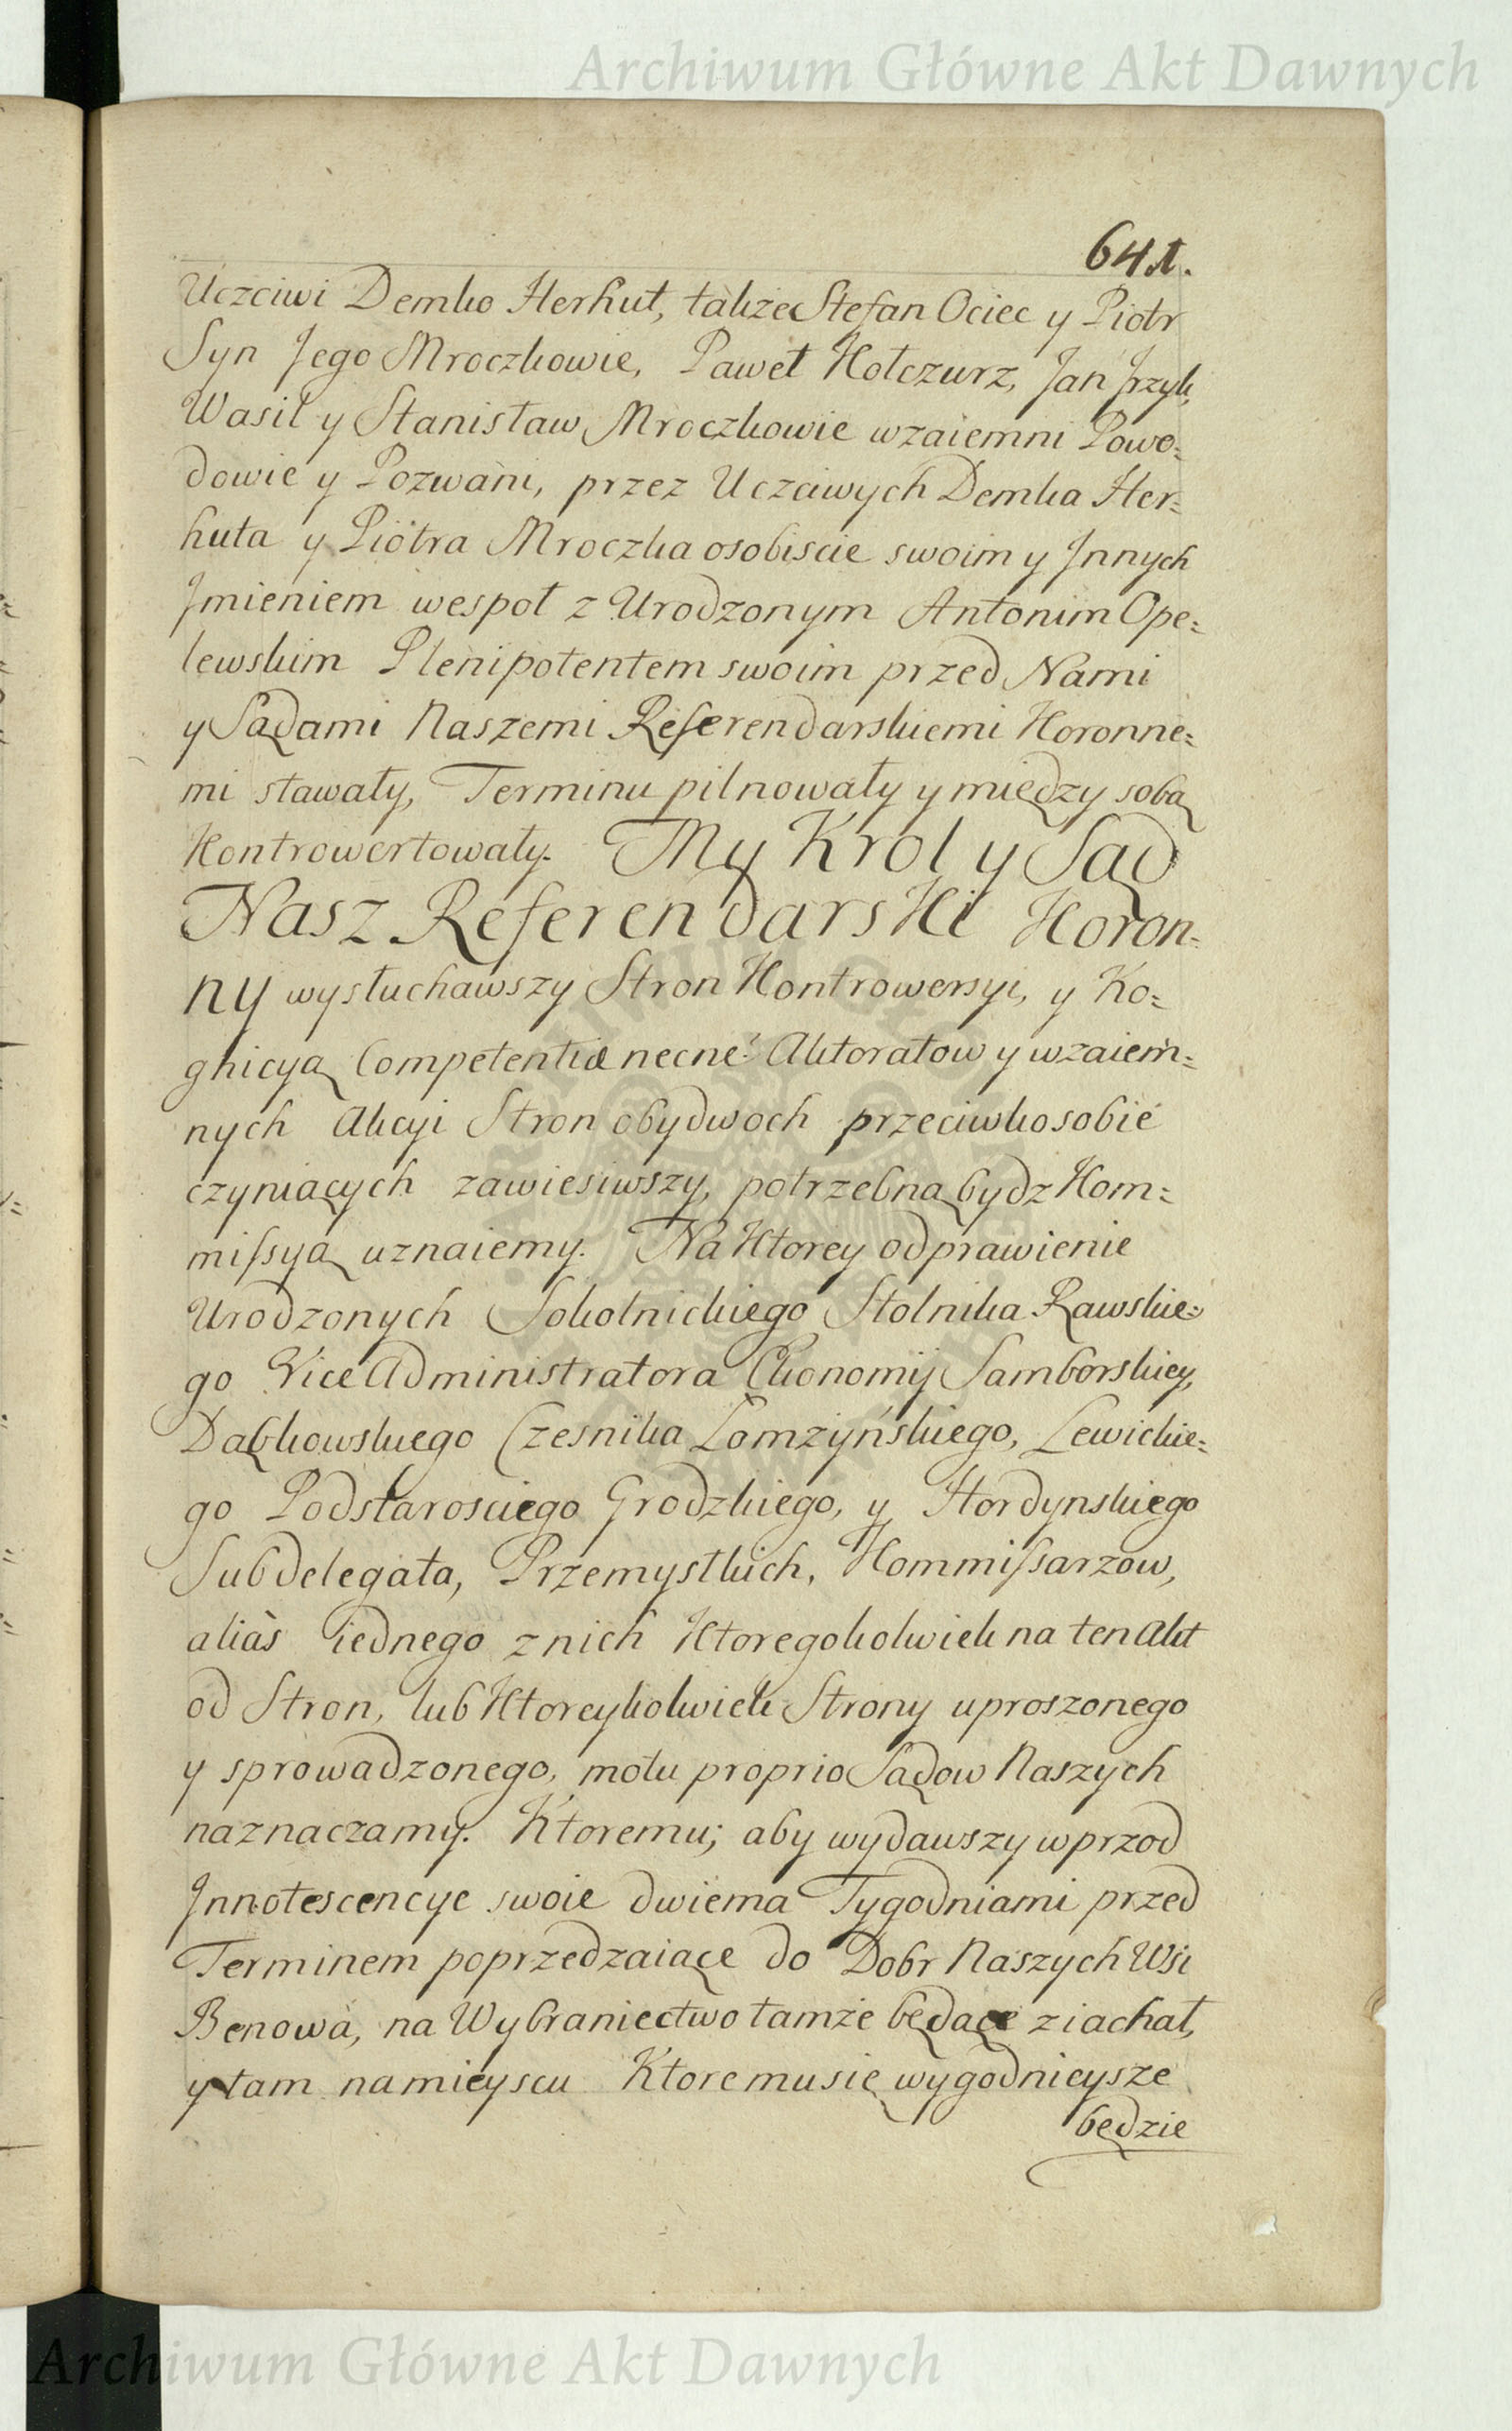 Archiwum Główne Akt Dawnych
641.
Uczciwi Demko Herhut, także Stefan Ociec y Piotr
Syn Jego Mroczkowie, Paweł Kołczurz, Jan Jrzyk,
Wasil y Stanisław Mroczkowie wzaiemni Powo=
dowie y Pozwani, przez Uczciwych Demka Her=
huta y Piotra Mroczka osobiscie swoim y Jnnych
Jmieniem wespoł z Urodzonym Antonim Ope=
lewskim Plenipotentem swoim przed Nami
y Sądami Naszemi Referendarskiemi Koronne=
mi stawały, Terminu pilnowały y między sobą
Kontrowertowały. My Krol y Sąd
Nasz Referendarski Koron=
ny wysłuchawszy Stron Kontrowersyi, y Ko=
gnicyą Competentiæ necne Aktoratow y wzaiem=
nych Akcyi Stron obydwoch przeciwko sobie
czyniących zawiesiwszy, potrzebną bydz Kom=
missyą uznaiemy. Na Ktorey odprawienie
Urodzonych Sokolnickiego Stolnika Rawskie=
go Vice Administratora Ekonomij Samborskiey,
Dąbkowskiego Czesnika Łomzyńskiego, Lewickie=
go Podstarosciego Grodzkiego, y Hordynskiego
Subdelegata, Przemyslkich, Kommissarzow,
aliàs iednego z nich Ktoregokolwiek na ten Akt
od Stron, lub Ktoreykolwiek Strony uproszonego
y sprowadzonego, motu proprio Sądow Naszych
naznaczamy. Ktoremu; aby wydawszy wprzod
Jnnotescencye swoie dwiema Tygodniami przed
Terminem poprzedzaiące do Dobr Naszych Wsi
Benowa, na Wybraniectwo tamże będące ziachał,
y tam na mieyscu Ktore mu się wygodnieysze
będzie
Archiwum Główne Akt Dawnych